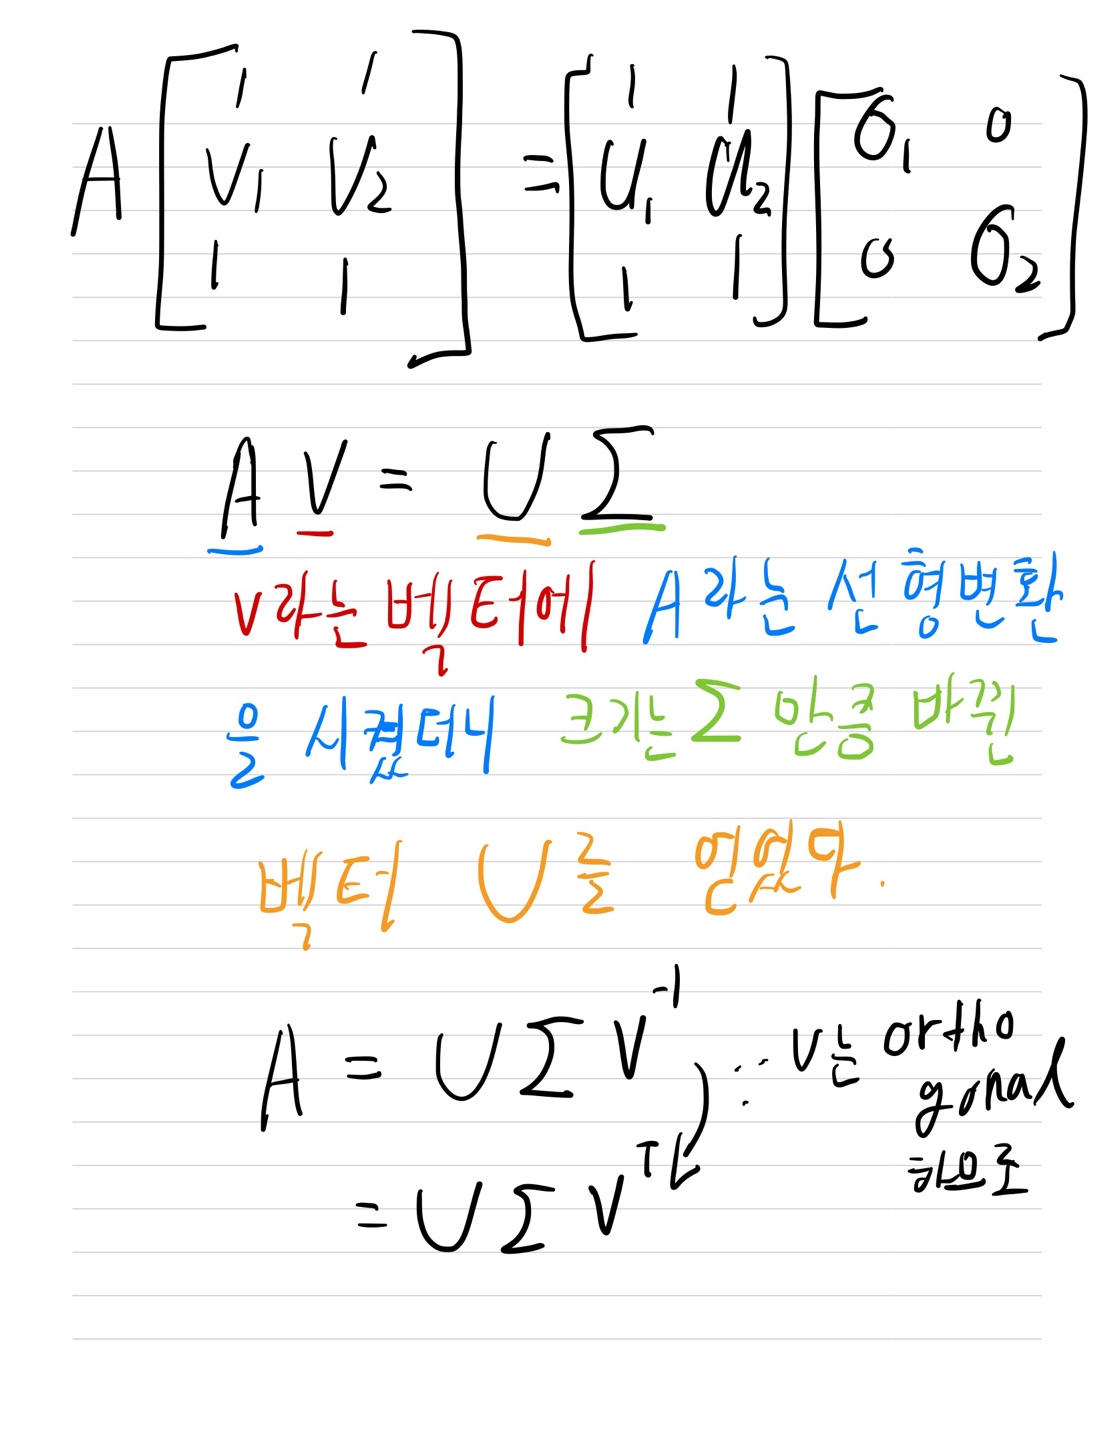 A [ | | = [ | | ] [ σ₁ 0
V₁ V₂ U₁ U₂
| | ] | | 0 σ₂ ]
A V = U Σ
V라는 벡터에 A라는 선형변환
을 시켰더니 크기는 Σ 만큼 바뀐
벡터 U를 얻었다.
A = U Σ V⁻¹ ∵ V는 ortho
gonal
하므로
= U Σ Vᵀ